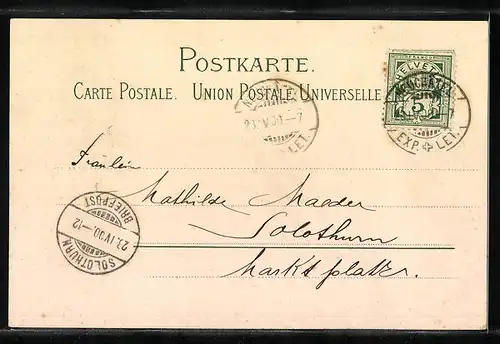 POSTKARTE.
CARTE POSTALE. UNION POSTALE UNIVERSELLE
FRANCO
HELVETIA
5
NEUCHÂTEL
EXP. LET.
23.IV.00.-7
LET.
Fräulein
Mathilde Maader
Solothurn
Marktplatz.
SOLOTHURN
23.IV.00.-12
BRIEFPOST